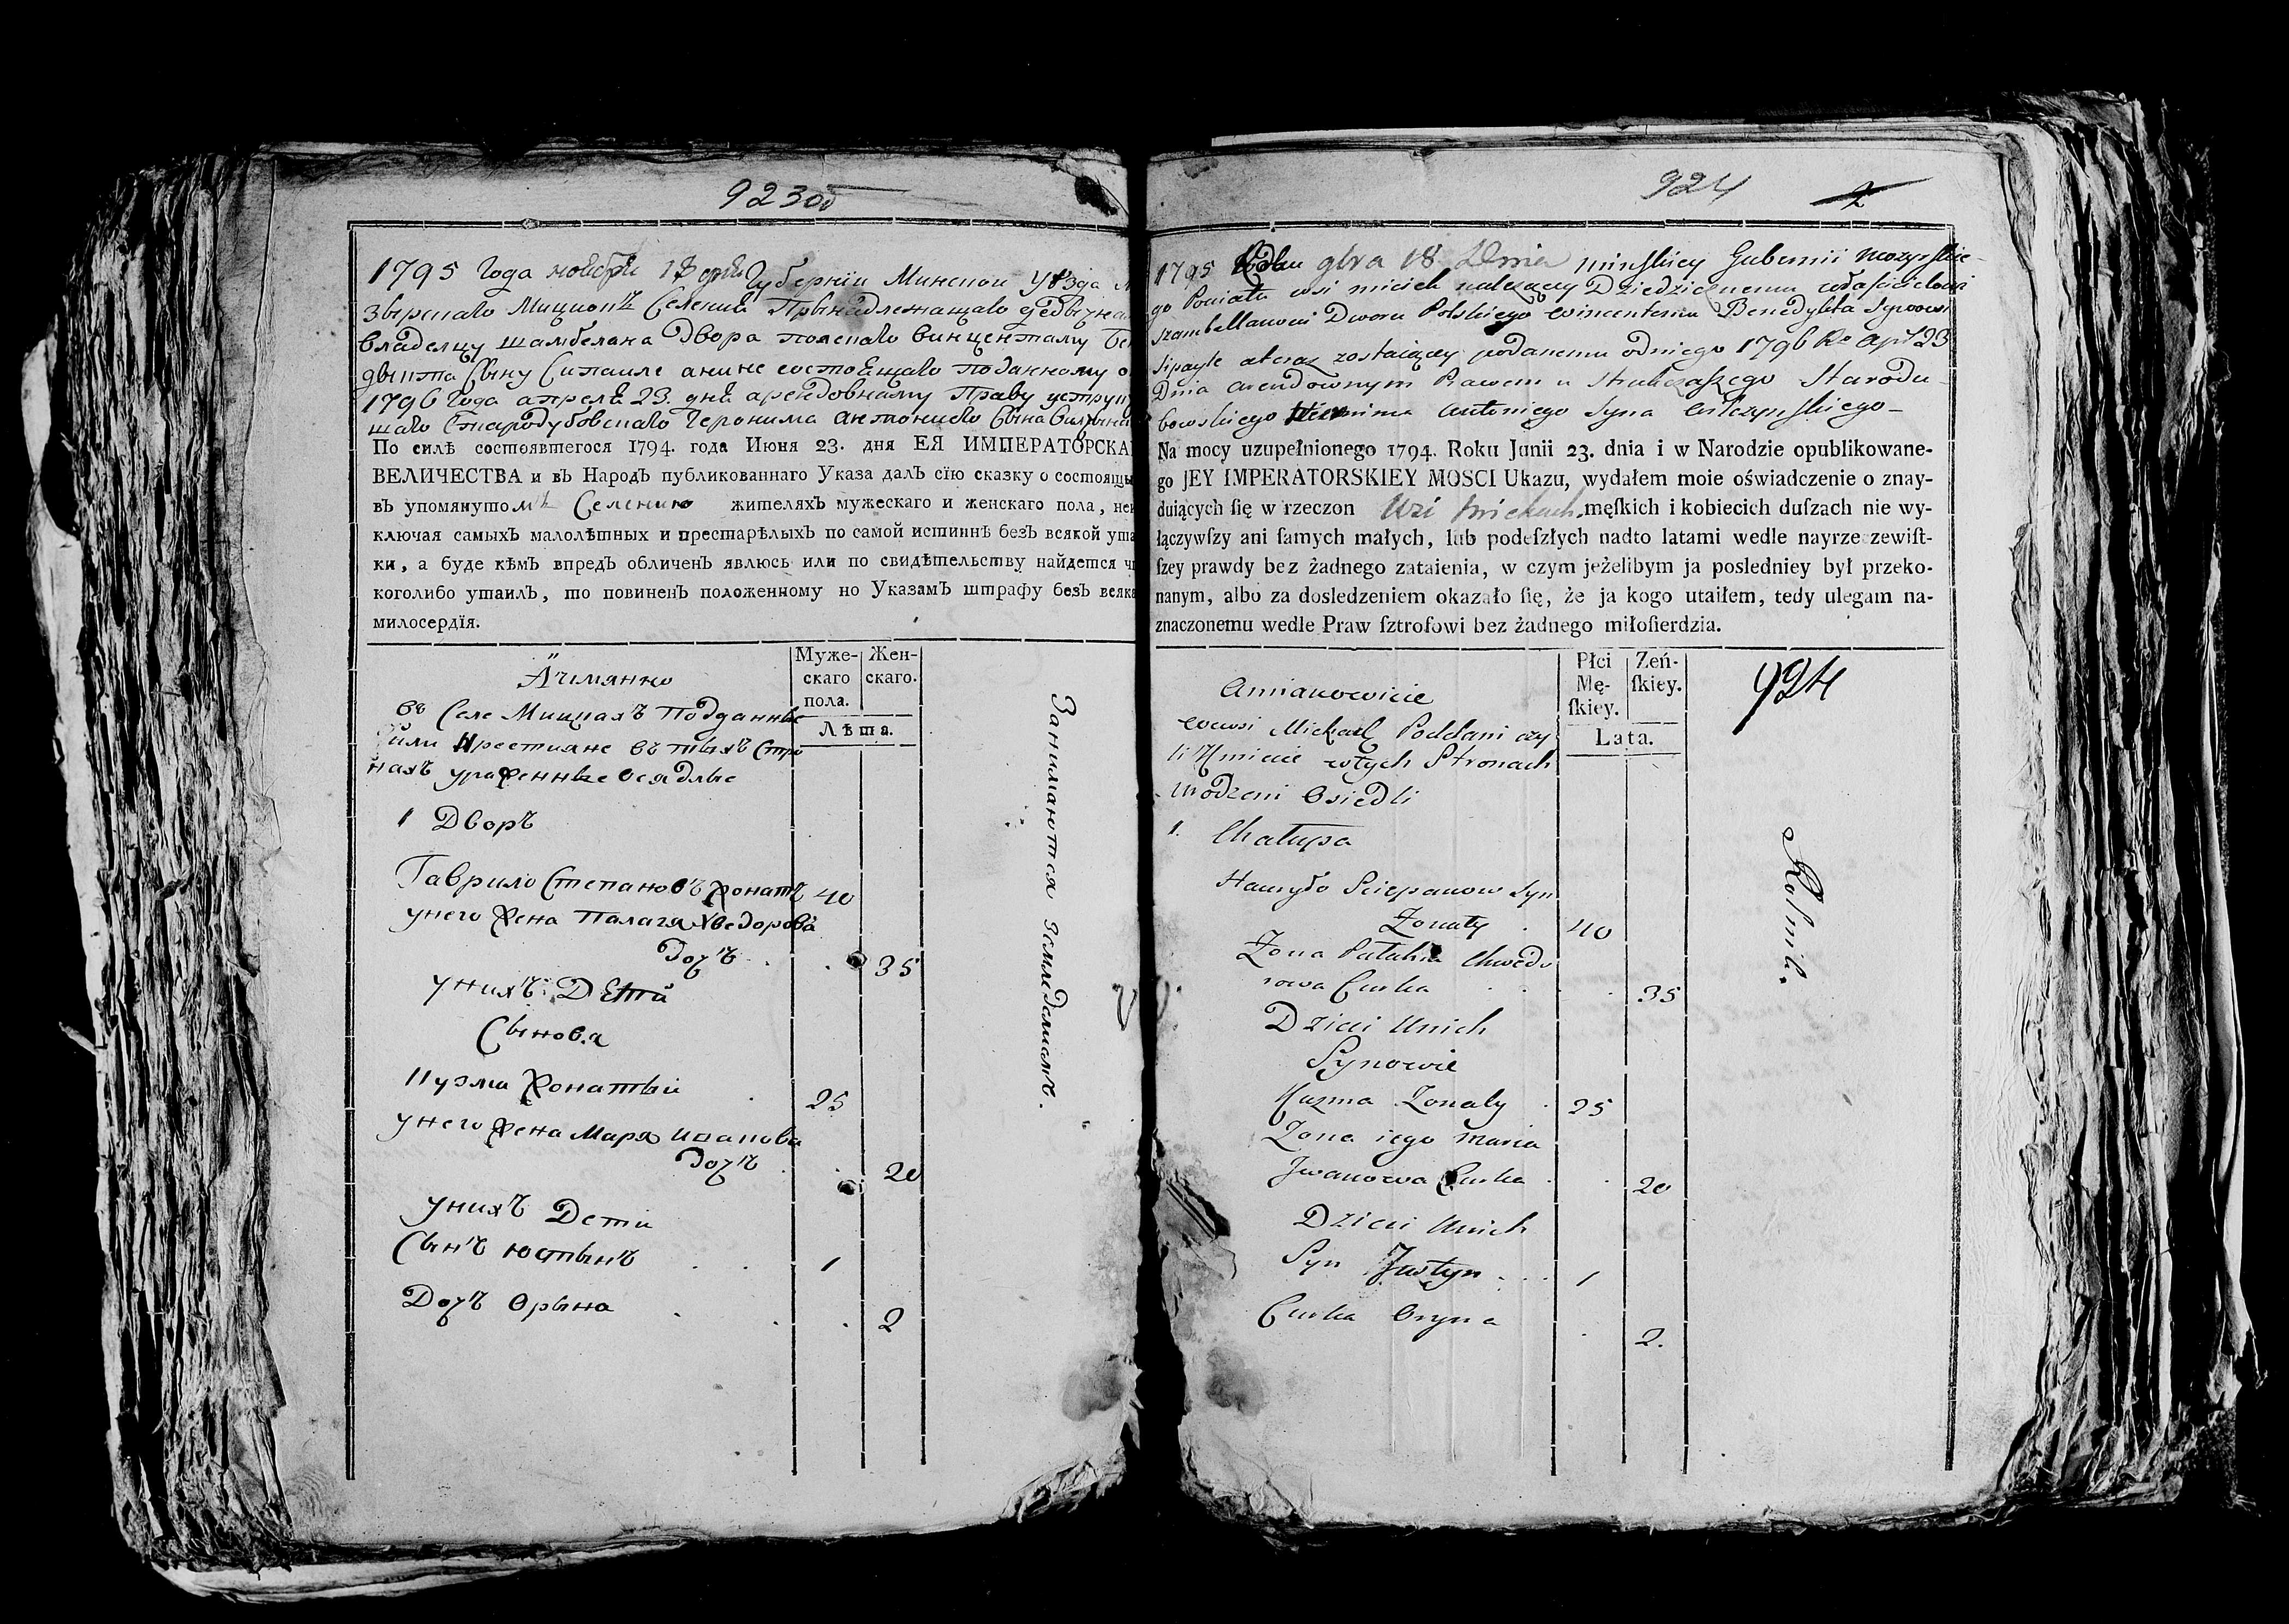 923об
1795 Года ноября 18 дня Губернии Минской Уезда М
зырскаго Мицкомъ Селении Прынадлежащаго
владелцу шамбеляна Двора полскаго винцентаму Бе
двыкта Сыну
1796 Года апреля 23. дня арендовному Праву
Стародубовскаго Геронима антониего Сына
По силѣ состоявшегося 1794. года Июня 23. дня ЕЯ ИМПЕРАТОРСКА
ВЕЛИЧЕСТВА и въ Народъ публикованнаго Указа далъ сїю сказку о состоящи
въ упомянутомъ Селению жителяхъ мужескаго и женскаго пола, неи
ключая самыхъ малолѣтныхъ и престарѣлыхъ по самой истиннѣ безъ всякой ута
ки, а буде кѣмъ впредъ обличенъ явлюсь или по свидѣтельству найдется ч
коголибо утаилъ, то повиненъ положенному по Указамъ штрафу безъ всяка
милосердїя.
Муже-скаго пола. Жен-скаго.
Лѣта.
въ Селе Мицкахъ Подданные
или Крестиане въ тыхъ Стро
нахъ уроженные Осядлые
1 Дворъ
Гаврило Степановъ жонатъ 40
унего жена Палагя Хведорова
дочъ 35
унихъ Дети
Сынова
Кузма Жонатый 25
унего жена Маря Иванова
дочъ 20
унихъ Дети
Сынъ Юстынъ 1
Дочъ Орына 2
Занимаются земледелиемъ.
924 2
1795 Roku 9bra 18 Dnia minskiey Gubernii mozyrskie-
go Powiatu wsi miciek należącey Dziedzicznemu właścicielowi
szambellanowi Dworu Polskiego wincentemu Benedykta Synowi
ateraz zostaiącey podanemu odniego 1796 Ro Apr 23
Dnia arendownym Prawem u Strukczaszego Starodu-
bowskiego Hieronima Antoniego Syna wilczynskiego-
Na mocy uzupełnionego 1794. Roku Junii 23. dnia i w Narodzie opublikowane-
go JEY IMPERATORSKIEY MOSCI Ukazu, wydałem moie oświadczenie o znay-
duiących ſię w rzeczon wsi mickach męſkich i kobiecich duſzach nie wy-
łączywſzy ani ſamych małych, lub podeſzłych nadto latami wedle nayrzeczewiſt-
ſzey prawdy bez żadnego zataienia, w czym jeżelibym ja posledniey był przeko-
nanym, albo za dosledzeniem okazało ſię, że ja kogo utaiłem, tedy ulegam na-
znaczonemu wedle Praw ſztrofowi bez żadnego miłoſierdzia.
Płci Mę-ſkiey. Zeń-ſkiey.
Lata.
924
wewsi Mickach Poddani czy
li Kmiecie wtych Stronach
Urodzeni Osiedli
1. Chałupa
Hawryło Sciepanow Syn
Zonaty 40
Zona Pałahia Chwedo
rowa Curka 35
Dzieci Unich
Synowie
Kuzma Zonaty 25
Zona iego maria
Jwanowa Curka 20
Dzieci Unich
Syn Justyn 1
Curka Oryna 2.
Rolnik.